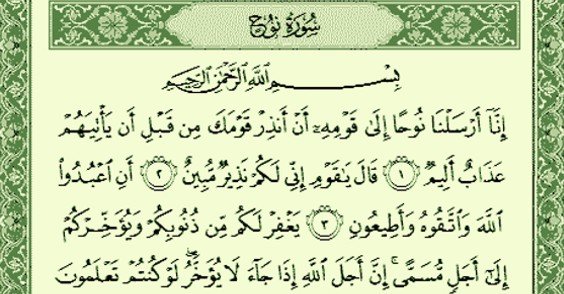 سُورَةُ نُوحٍ
بِسْمِ اللَّهِ الرَّحْمَٰنِ الرَّحِيمِ
إِنَّآ أَرْسَلْنَا نُوحًا إِلَىٰ قَوْمِهِۦٓ أَنْ أَنذِرْ قَوْمَكَ مِن قَبْلِ أَن يَأْتِيَهُمْ
عَذَابٌ أَلِيمٌ ١ قَالَ يَٰقَوْمِ إِنِّي لَكُمْ نَذِيرٌ مُّبِينٌ ٢ أَنِ ٱعْبُدُوا۟
ٱللَّهَ وَٱتَّقُوهُ وَأَطِيعُونِ ٣ يَغْفِرْ لَكُم مِّن ذُنُوبِكُمْ وَيُؤَخِّرْكُمْ
إِلَىٰٓ أَجَلٍ مُّسَمًّى ۚ إِنَّ أَجَلَ ٱللَّهِ إِذَا جَآءَ لَا يُؤَخَّرُ ۖ لَوْ كُنتُمْ تَعْلَمُونَ